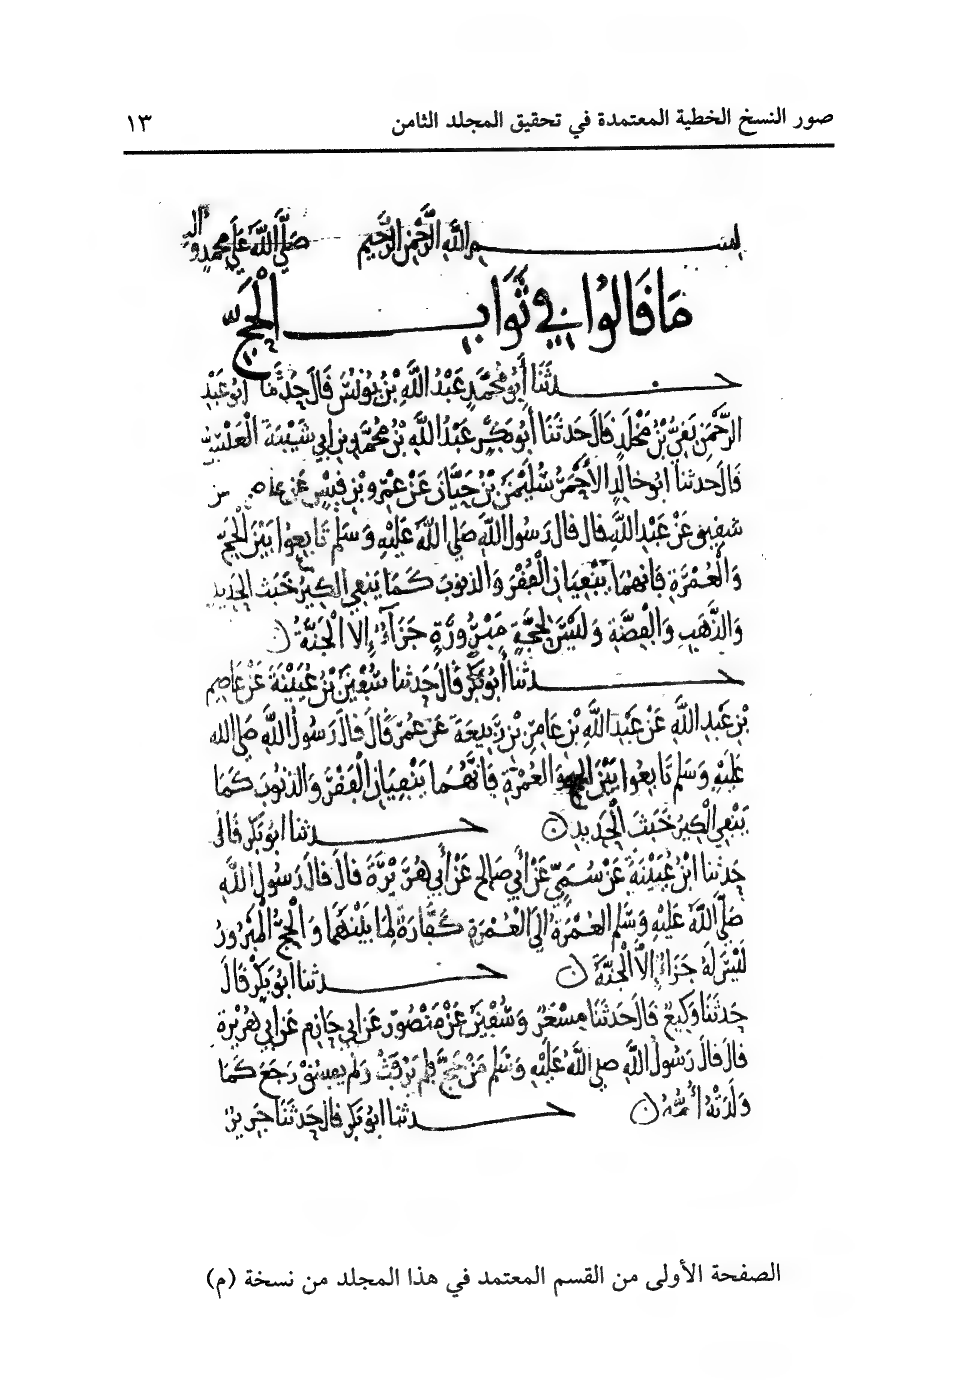 صور النسخ الخطية المعتمدة في تحقيق المجلد الثامن ١٣
بسم الله الرحمن الرحيم صلى الله على محمد وآله
مَا قَالُوا فِي ثَوَابِ الْحَجِّ
حدثنا أبو محمد عبد الله بن يونس قال حدثنا أبو عبد
الرحمن بقي بن مخلد قال حدثنا أبو بكر عبد الله بن محمد بن أبي شيبة العبسي
قال حدثنا أبو خالد الأحمر سليمن بن حيان عن عمرو بن قيس عن عاصم عن
شقيق عن عبد الله قال قال رسول الله صلى الله عليه وسلم تابعوا بين الحج
والعمرة فإنهما ينفيان الفقر والذنوب كما ينفي الكير خبث الحديد
والذهب والفضة وليس لحجة مبرورة جزاء إلا الجنة
حدثنا أبو بكر قال حدثنا سفين بن عيينة عن عاصم
بن عبد الله عن عبد الله بن عامر بن ربيعة عن عمر قال قال رسول الله صلى الله
عليه وسلم تابعوا بين الحج والعمرة فإنهما ينفيان الفقر والذنوب كما
ينفي الكير خبث الحديد حدثنا أبو بكر قال
حدثنا ابن عيينة عن سمي عن أبي صالح عن أبي هريرة قال قال رسول الله
صلى الله عليه وسلم العمرة إلى العمرة كفارة لما بينهما والحج المبرور
ليس له جزاء إلا الجنة حدثنا أبو بكر قال
حدثنا وكيع قال حدثنا مسعر وسفين عن منصور عن أبي حازم عن أبي هريرة
قال قال رسول الله صلى الله عليه وسلم من حج فلم يرفث ولم يفسق رجع كما
ولدته أمه حدثنا أبو بكر قال حدثنا جرير
الصفحة الأولى من القسم المعتمد في هذا المجلد من نسخة (م)